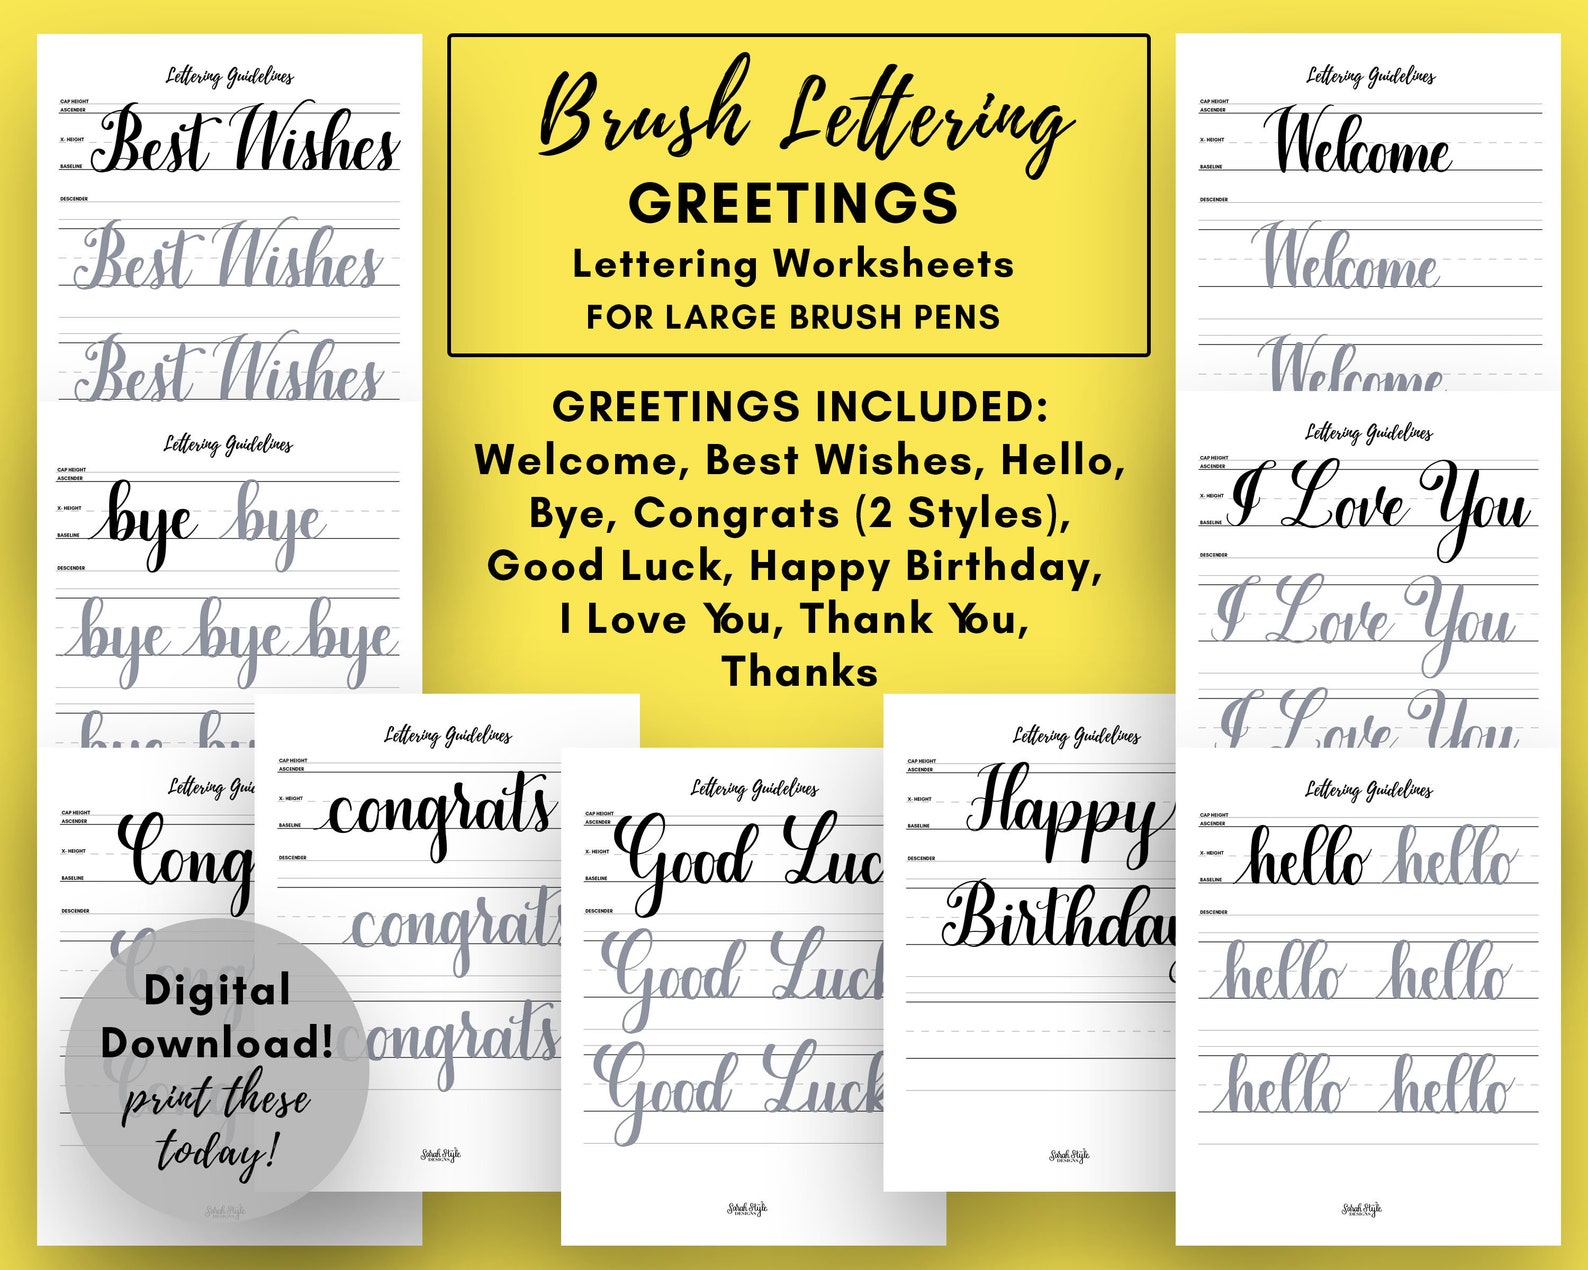 Brush Lettering
GREETINGS
Lettering Worksheets
FOR LARGE BRUSH PENS
GREETINGS INCLUDED:
Welcome, Best Wishes, Hello,
Bye, Congrats (2 Styles),
Good Luck, Happy Birthday,
I Love You, Thank You,
Thanks
Lettering Guidelines
CAP HEIGHT
ASCENDER
X- HEIGHT
BASELINE
DESCENDER
Best Wishes
Best Wishes
Best Wishes
Lettering Guidelines
CAP HEIGHT
ASCENDER
X- HEIGHT
BASELINE
DESCENDER
bye bye
bye bye bye
bye by
Lettering Gui
CAP HEIGHT
ASCENDER
X- HEIGHT
BASELINE
DESCENDER
Cong
Cong
Cong
Digital
Download!
print these
today!
Sarah Style
DESIGNS
Lettering Guidelines
CAP HEIGHT
ASCENDER
X- HEIGHT
BASELINE
DESCENDER
congrats
congrats
congrats
Sarah Style
DESIGNS
Lettering Guidelines
CAP HEIGHT
ASCENDER
X- HEIGHT
BASELINE
DESCENDER
Good Luc
Good Luck
Good Luck
Sarah Style
DESIGNS
Lettering Guidelines
CAP HEIGHT
ASCENDER
X- HEIGHT
BASELINE
DESCENDER
Happy
Birthday
Sarah Style
DESIGNS
Lettering Guidelines
CAP HEIGHT
ASCENDER
X- HEIGHT
BASELINE
DESCENDER
Welcome
Welcome
Welcome
Lettering Guidelines
CAP HEIGHT
ASCENDER
X- HEIGHT
BASELINE
DESCENDER
I Love You
I Love You
I Love You
Lettering Guidelines
CAP HEIGHT
ASCENDER
X- HEIGHT
BASELINE
DESCENDER
hello hello
hello hello
hello hello
Sarah Style
DESIGNS